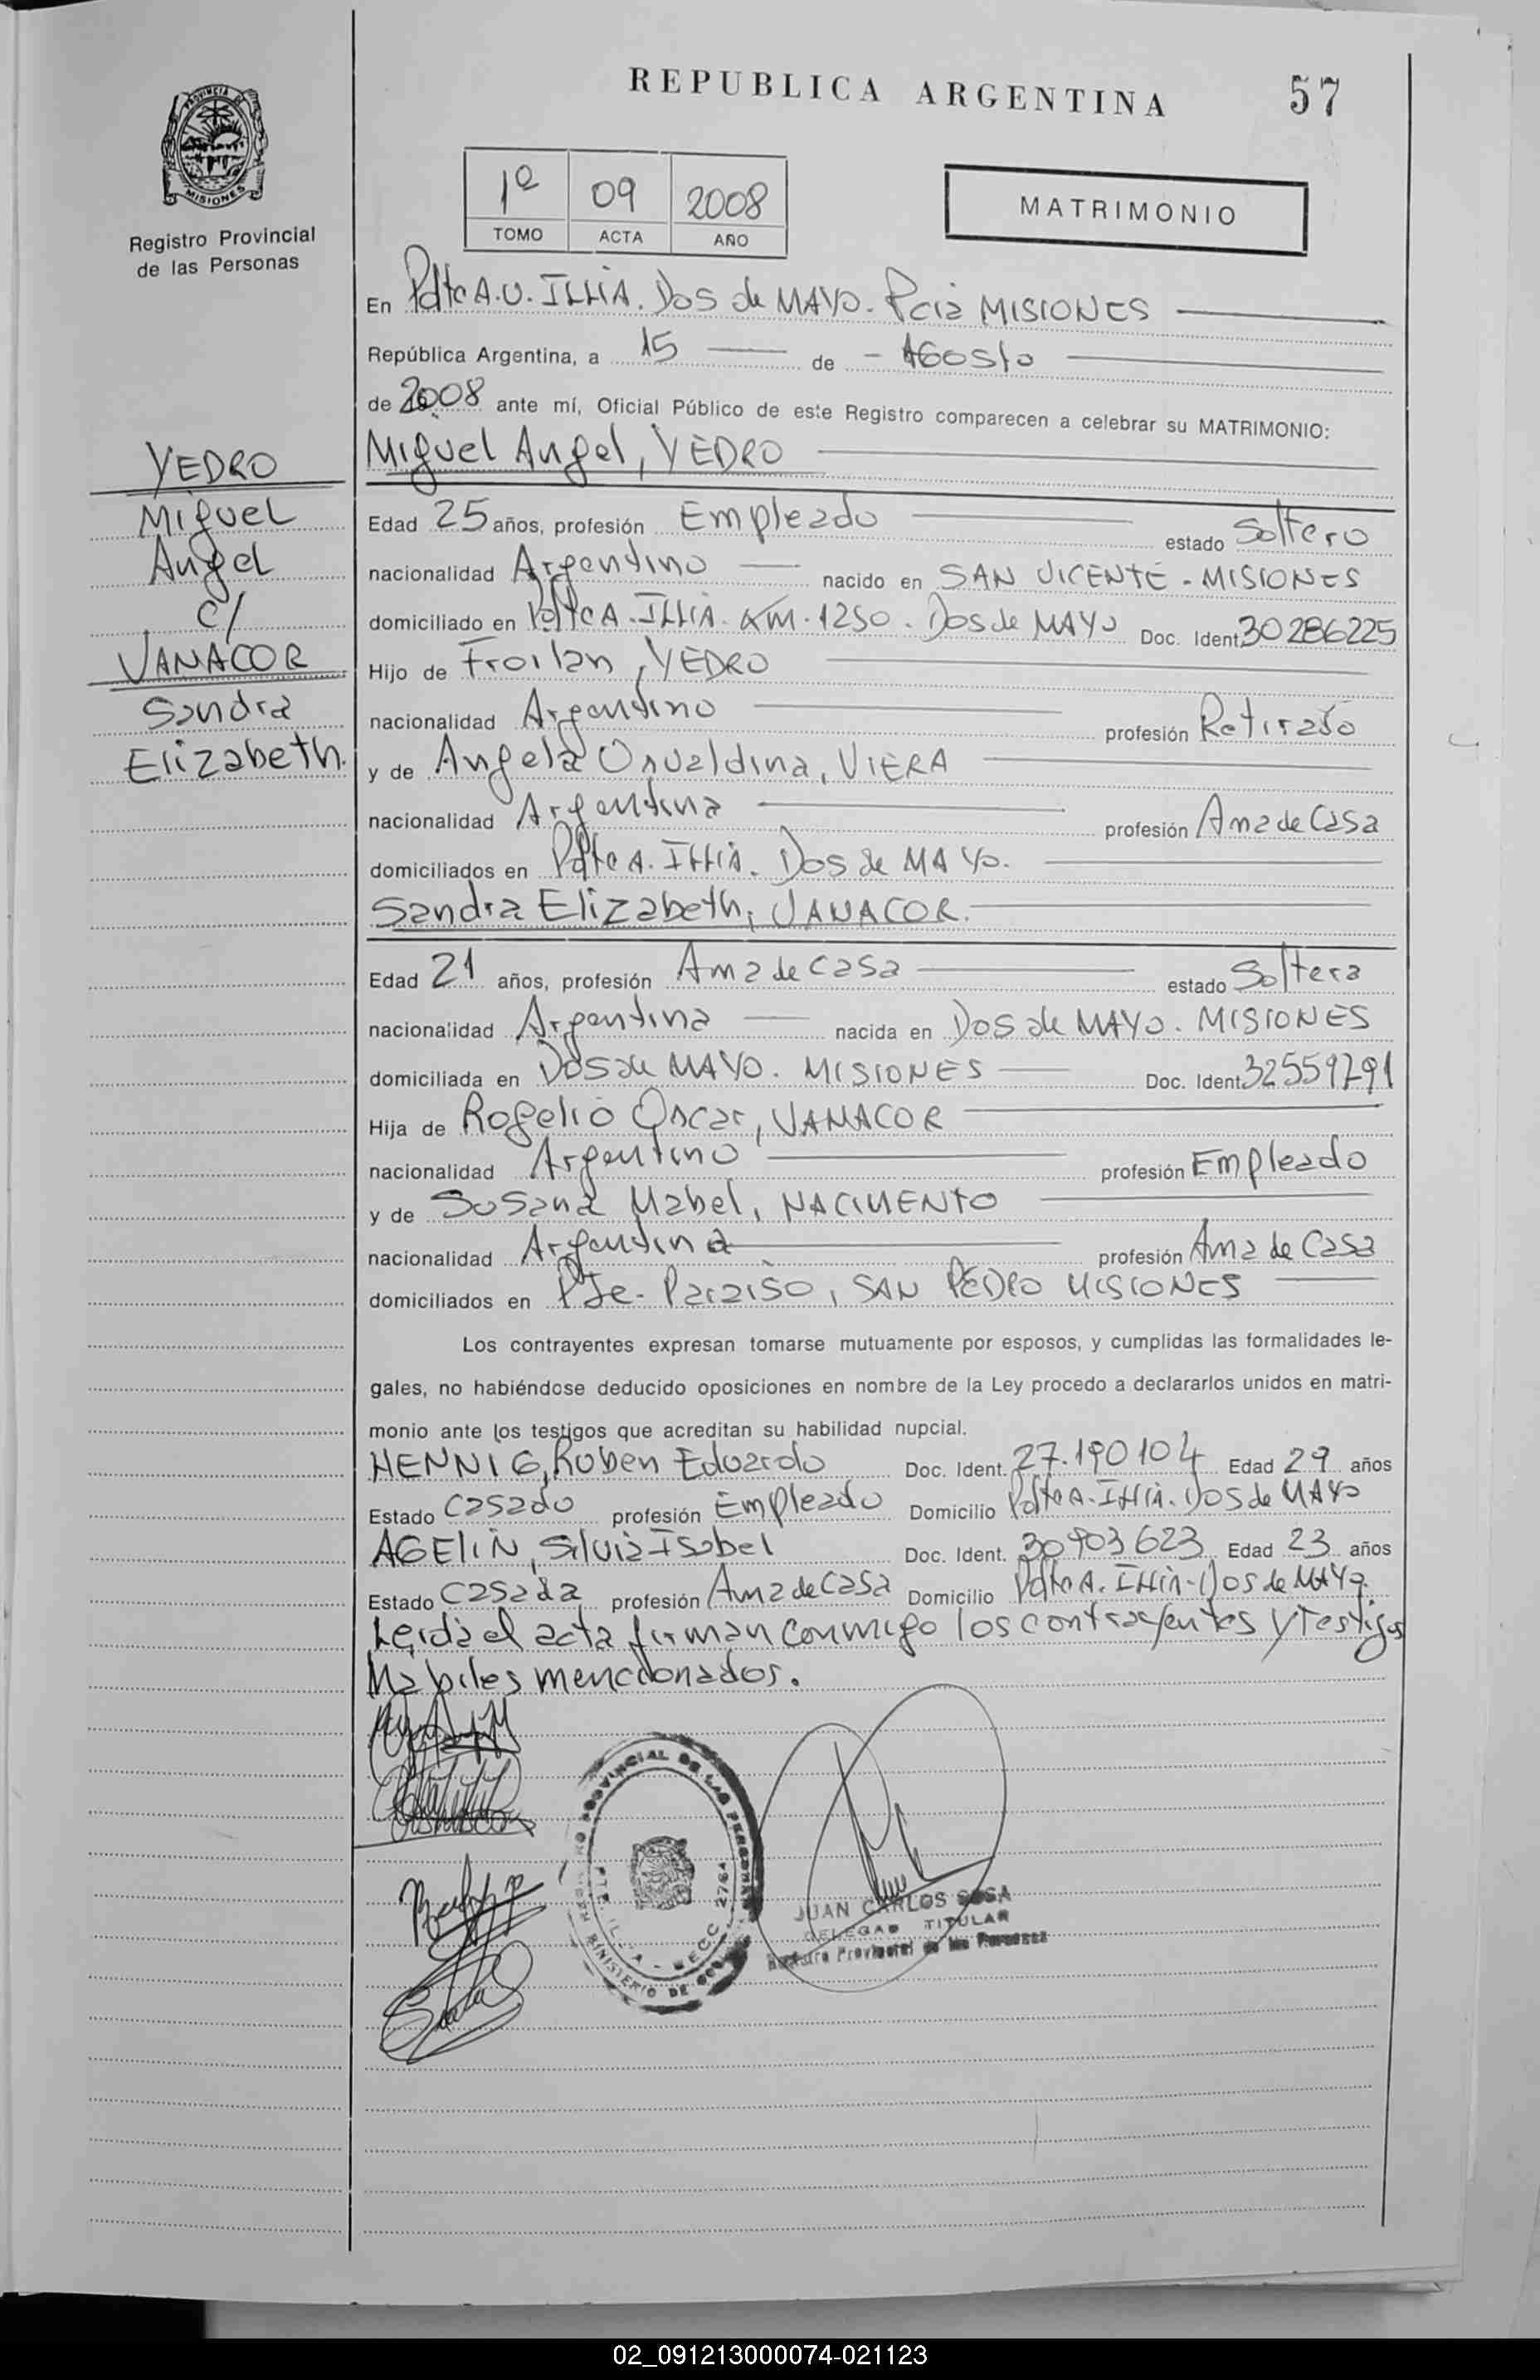 REPUBLICA ARGENTINA
57
PROVINCIA DE
MISIONES
Registro Provincial
de las Personas
1º 09 2008
TOMO ACTA AÑO
MATRIMONIO
En Pdte A.U. ILLIA. Dos de MAYO. Pcia MISIONES
República Argentina, a 15 de AGosto
de 2008 ante mí, Oficial Público de este Registro comparecen a celebrar su MATRIMONIO:
Miguel Angel, YEDRO
YEDRO
Miguel
Angel
c/
VANACOR
Sandra
Elizabeth.
Edad 25 años, profesión Empleado estado Soltero
nacionalidad Argentino nacido en SAN VICENTE - MISIONES
domiciliado en Pdte A. ILLIA. KM. 1250. Dos de MAYO Doc. Ident. 30286225
Hijo de Froilan, YEDRO
nacionalidad Argentino profesión Retirado
y de Angela Osvaldina, VIERA
nacionalidad Argentina profesión Ama de Casa
domiciliados en Pdte A. ILLIA. Dos de MAYO.
Sandra Elizabeth, VANACOR.
Edad 21 años, profesión Ama de Casa estado Soltera
nacionalidad Argentina nacida en Dos de MAYO. MISIONES
domiciliada en Dos de MAYO. MISIONES Doc. Ident. 32559291
Hija de Rogelio Oscar, VANACOR
nacionalidad Argentino profesión Empleado
y de Susana Mabel, NACIMENTO
nacionalidad Argentina profesión Ama de Casa
domiciliados en Pje. Paraiso, SAN PEDRO MISIONES
Los contrayentes expresan tomarse mutuamente por esposos, y cumplidas las formalidades le-
gales, no habiéndose deducido oposiciones en nombre de la Ley procedo a declararlos unidos en matri-
monio ante los testigos que acreditan su habilidad nupcial.
HENNIG, Ruben Eduardo Doc. Ident. 27.190104 Edad 29 años
Estado Casado profesión Empleado Domicilio Pdte A. ILLIA. Dos de MAYO
AGELIN, Silvia Isabel Doc. Ident. 30903623 Edad 23 años
Estado Casada profesión Ama de Casa Domicilio Pdte A. ILLIA - Dos de MAYO.
Leida el acta firman conmigo los contrayentes y Testigos
Habiles mencionados.
PROVINCIAL DE LAS PERSONAS
MINISTERIO DE
2764
JUAN CARLOS SOSA
TITULAR
Provincial de las Personas
02_091213000074-021123